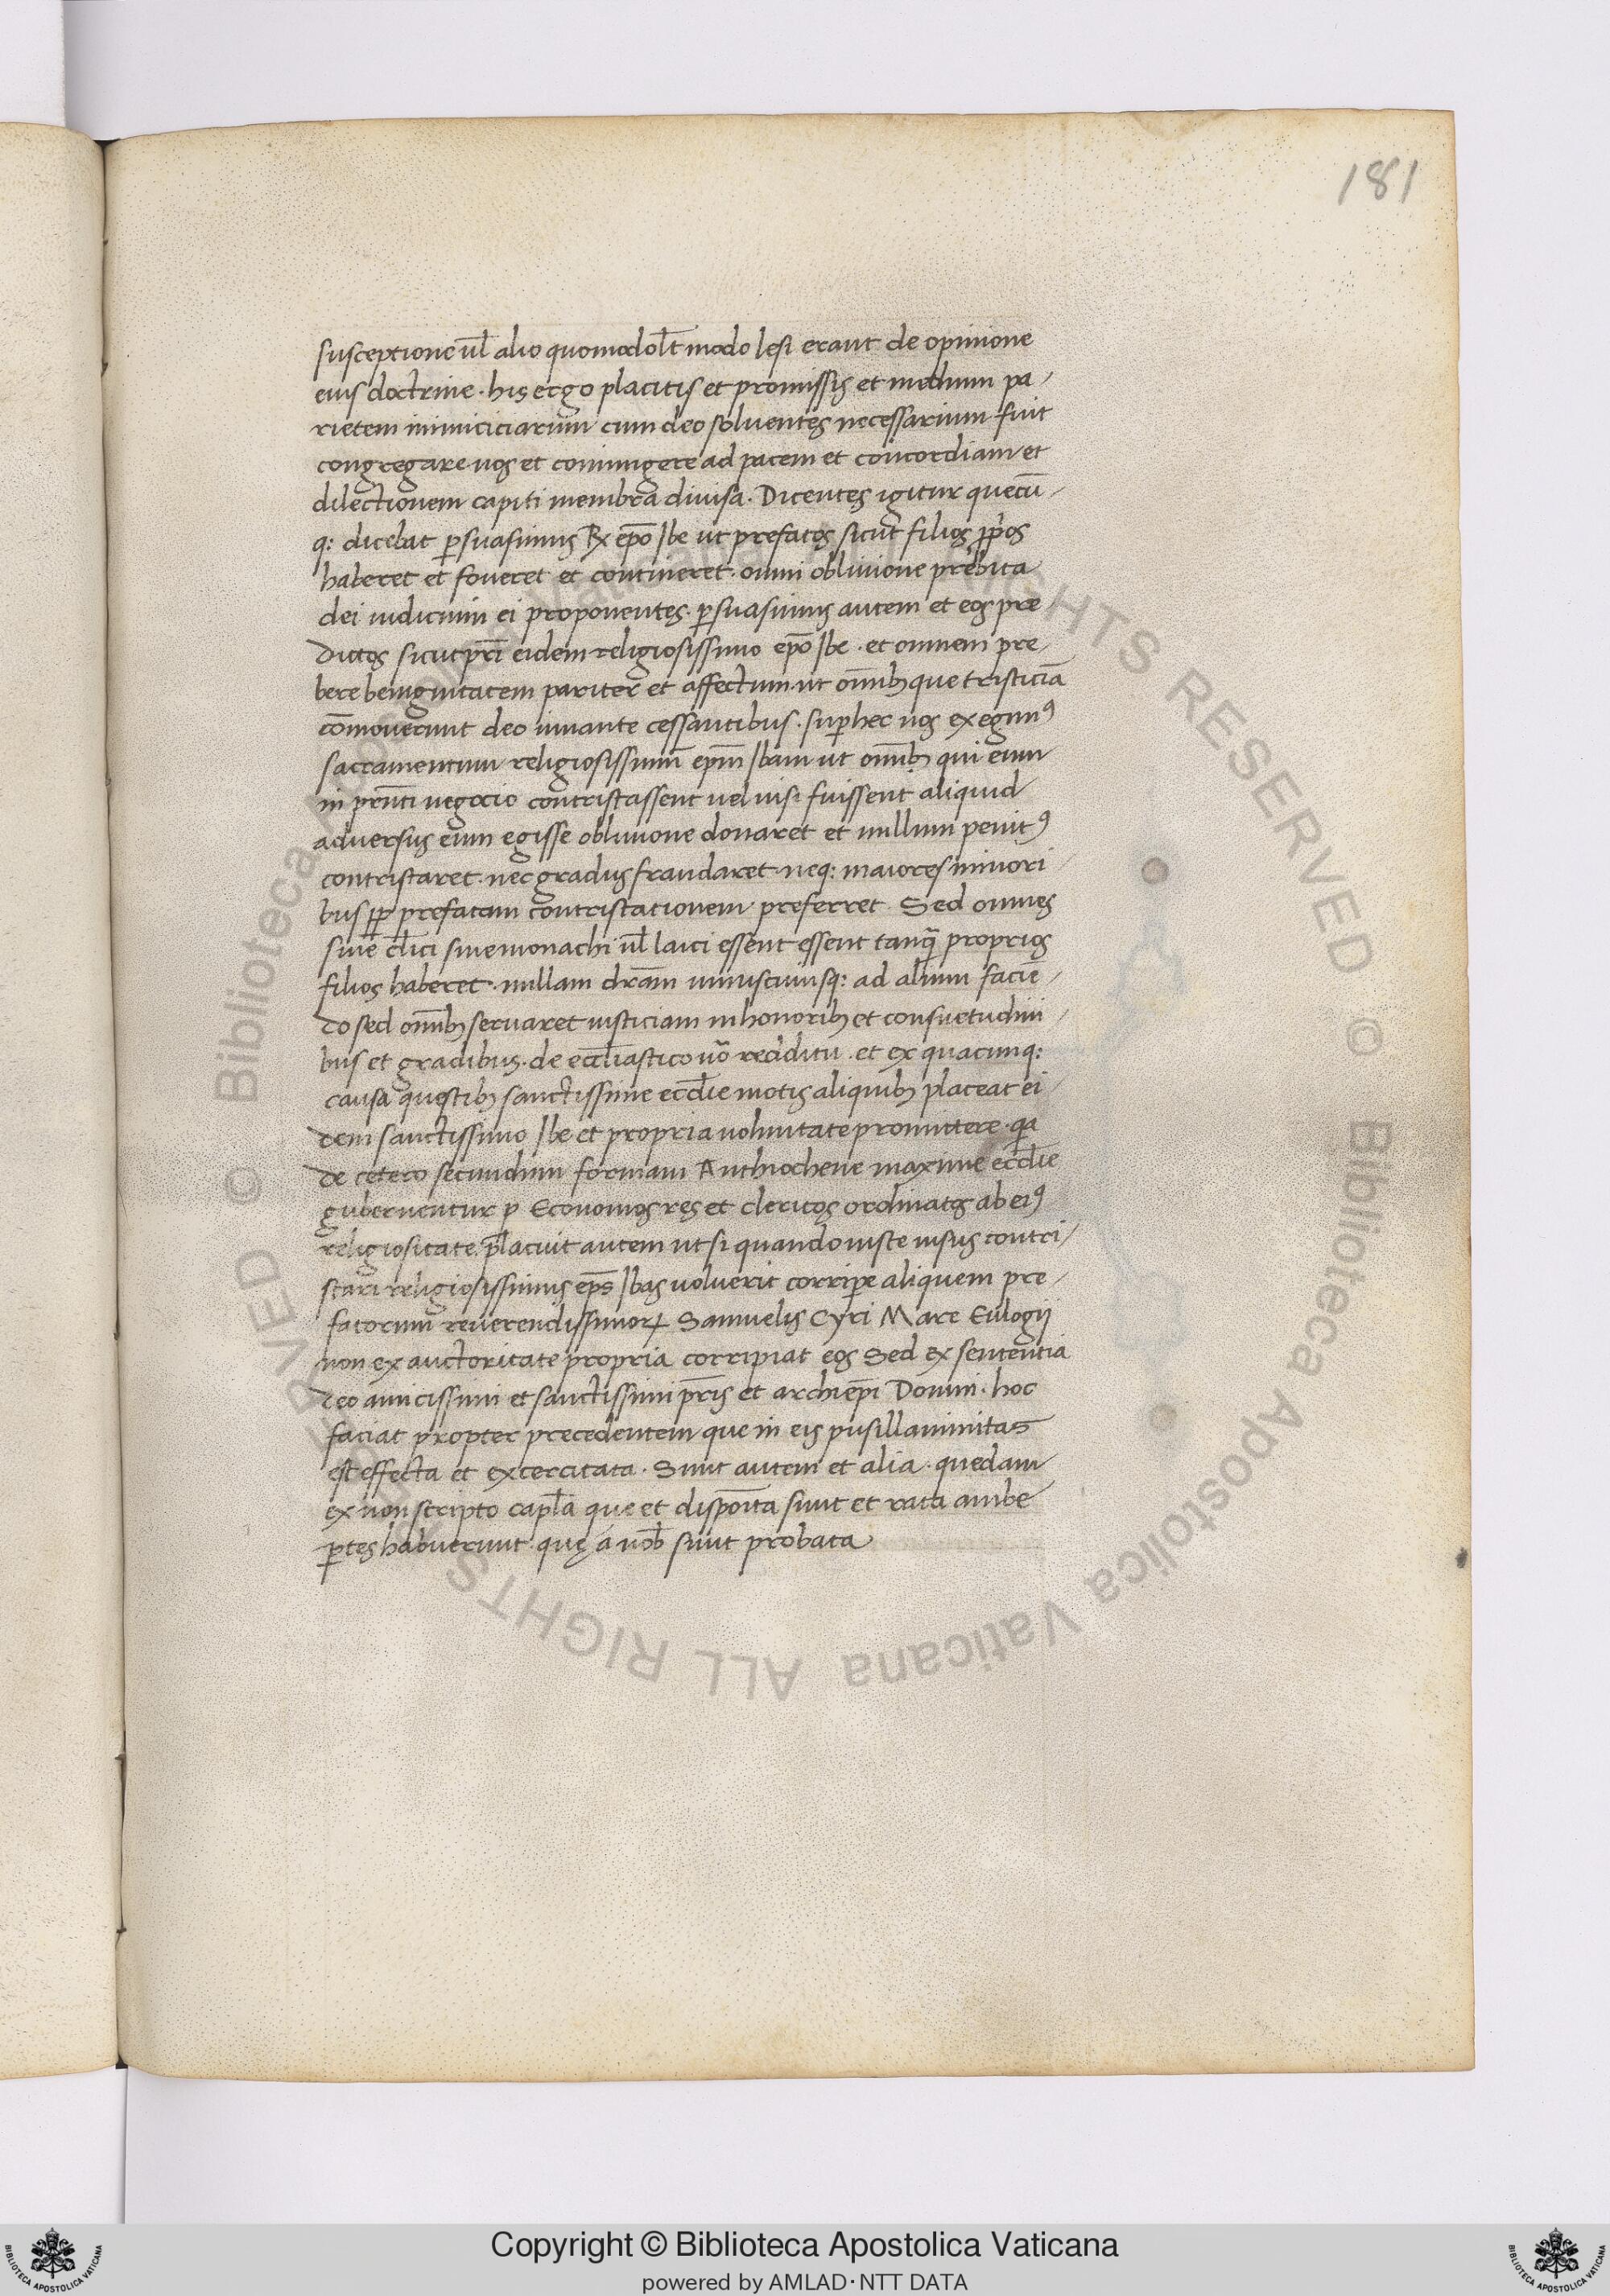 181
susceptione ul̄ alio quomodol̄t modo lesi erant de opinione
eius doctrine. his ergo placitis et promissis et medium pa-
rietem inimiciciarum cum deo soluentes necessarium fuit
congregare nos et coniungere ad pacem et concordiam et
dilectionem capiti membra diuisa. Dicentes igitur quecū-
q: dicebat ꝑsuasimus Rx ep̄o Ibe ut prefatos sicut filios ꝓp̄os
haberet et foueret et contineret. omni obliuione prebita
dei iudicium ei proponentes. ꝑsuasimus autem et eos pre-
dictos sicut pr̄i eidem religiosissimo ep̄o Ibe. et omnem pre-
bere benignitatem pariter et affectum. ut om̄ibꝫ que tristiciā
cōmouerunt deo iuuante cessantibus. suꝑ hec nos exegimꝰ
sacramentum religiosissimū ep̄m Ibam ut om̄ibꝫ qui eum
in pr̄nti negocio contristassent uel uisi fuissent aliquid
aduersus eum egisse obliuione donaret et nullum penitꝰ
contristaret. nec gradus fraudaret. neq: maiores minori-
bus ꝓꝑ prefatam contristationem preferret. Sed omnes
siue cl̄ici siue monachi ul̄ laici essent essent tanq̄ proprios
filios haberet. nullam dr̄am uniuscuiusq: ad alium facie-
do sed om̄ibꝫ seruaret iusticiam in honoribꝫ et consuetudini-
bus et gradibus. de eccl̄iastico uō reciditu. et ex quacunq:
causa questibꝫ sanctissime eccl̄ie motis aliquibꝫ placeat ei-
dem sanctissimo Ibe et propria uoluntate promittere. q̄a
de cetero secundum formam Anthiochene maxime eccl̄ie
gubernentur ꝑ Economos res et clericos ordinatos ab eiꝰ
religiositate. placuit autem ut si quando iuste uisus contri-
stari religiosissimus ep̄s Ibas uoluerit corriꝑe aliquem pre-
fatorum reuerendissimoꝝ Samuelis Cyri Mare Eulogij
non ex auctoritate propria corripiat eos Sed ex sententia
deo amicissimi et sanctissimi pr̄is et archiep̄i Domni. hoc
faciat propter precedentem que in eis pusillanimitas
est effecta et exercitata. Sunt autem et alia quedam
ex non scripto capl̄a que et dispōita sunt et rata ambe
ꝑtes habuerunt que a nob̄ sunt probata
Copyright © Biblioteca Apostolica Vaticana
powered by AMLAD·NTT DATA